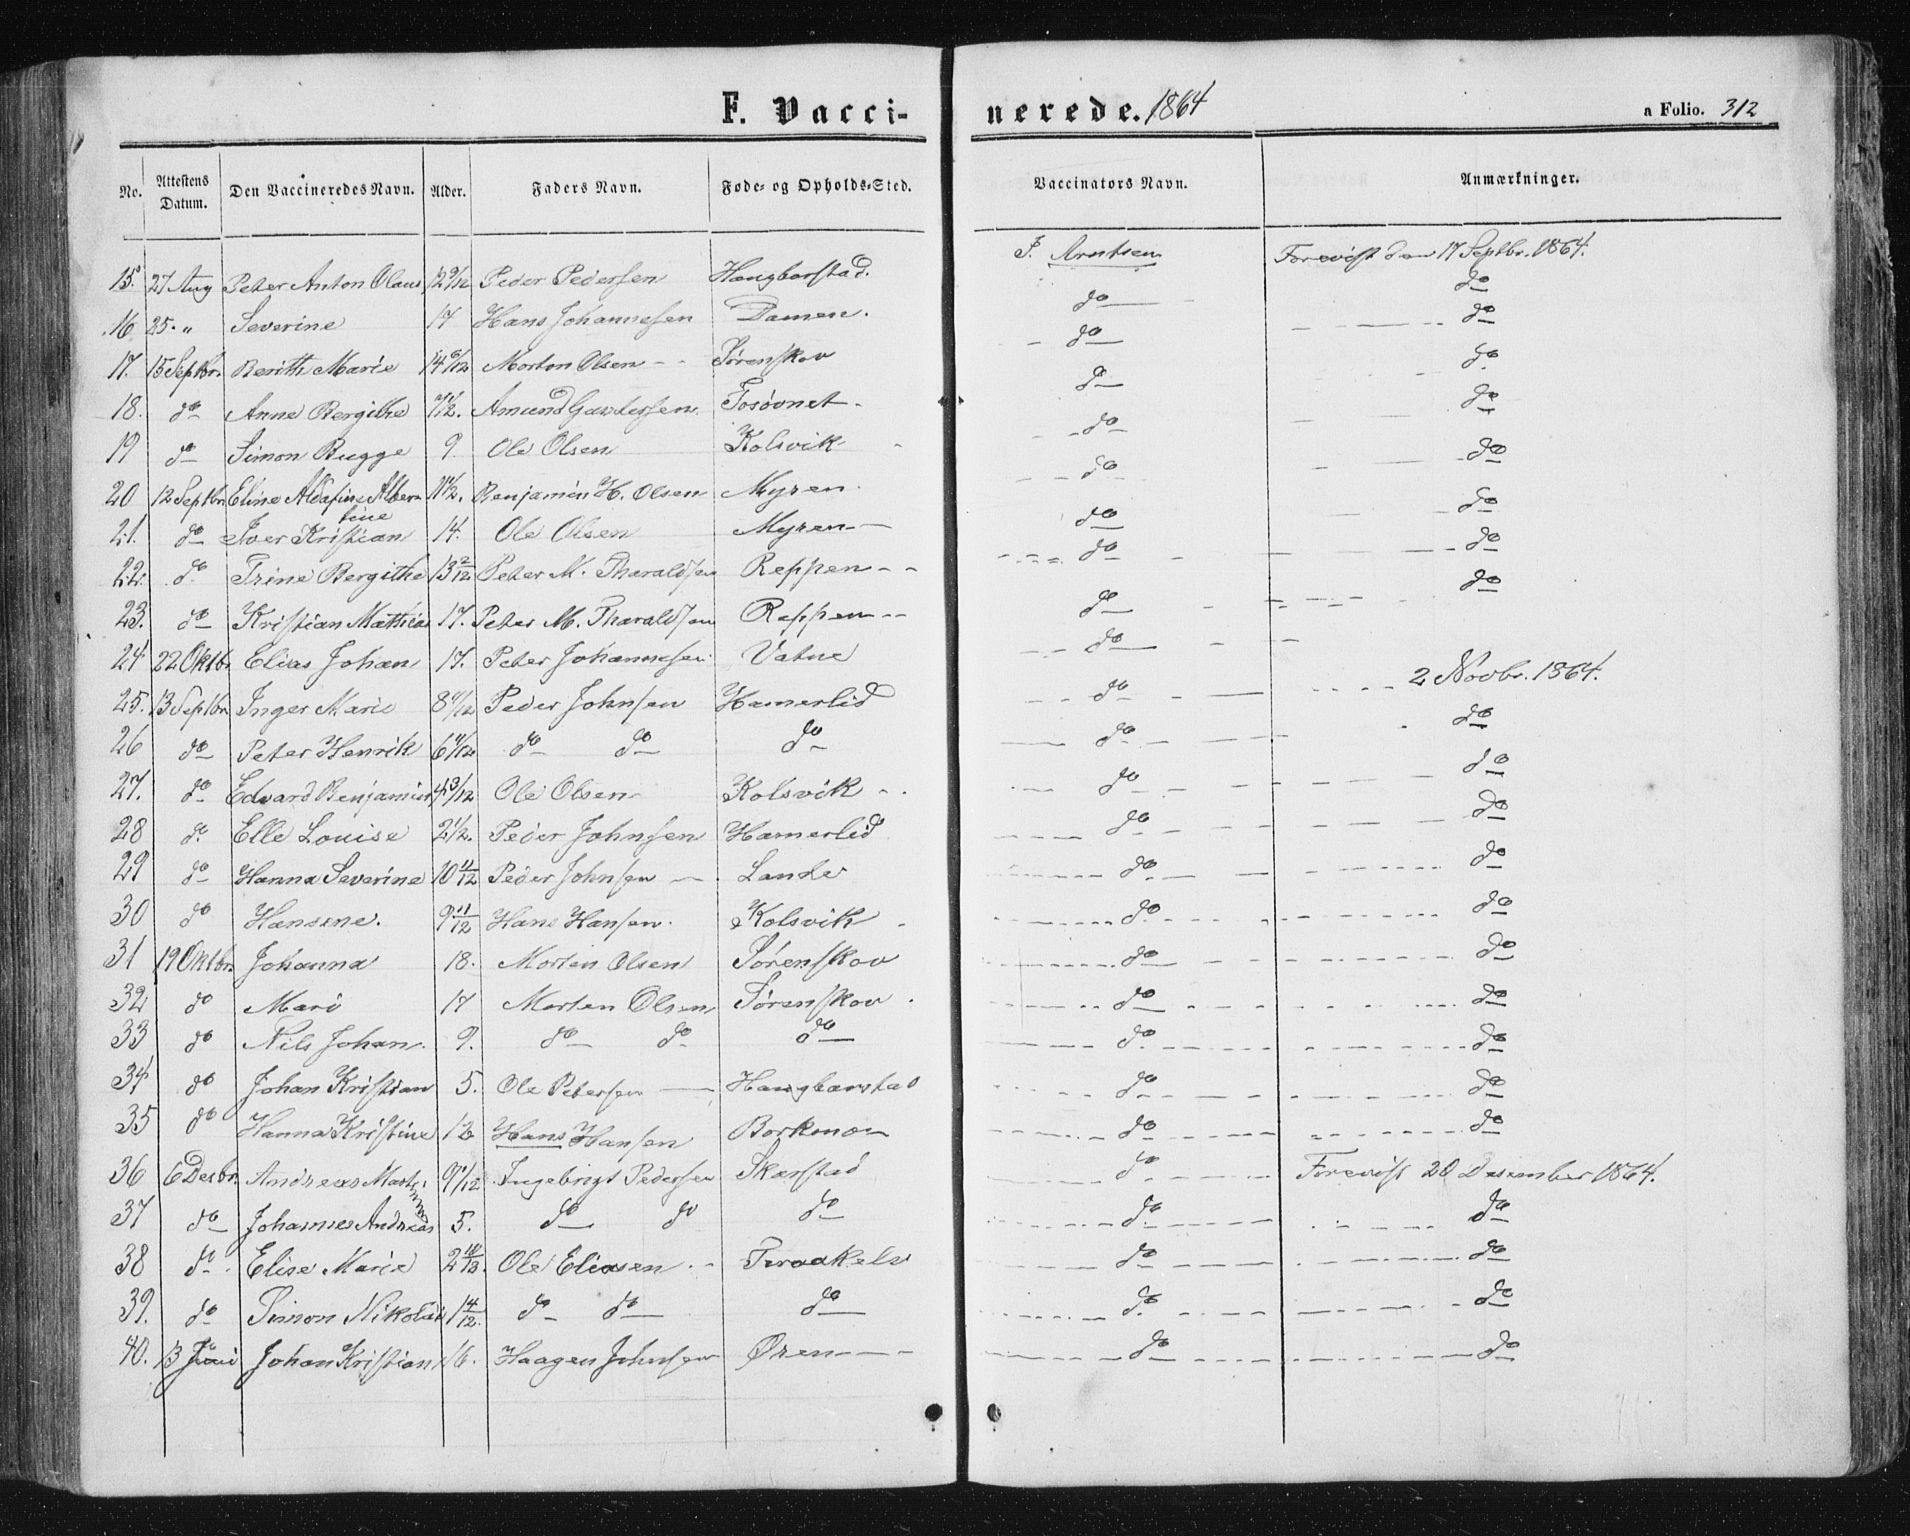 F. Vaccinerede. 1864 a Folio. 312
No. Attestens Datum. Den Vaccineredes Navn. Alder. Faders Navn. Føde- og Opholds-Sted. Vaccinators Navn. Anmærkninger.
15. 27 Aug Peter Anton Olaus 12 9/12 Peder Pedersen Haugbarstad. P. Arntsen Forevist den 17 Septbr. 1864.
16 25 „ Severine 17 Hans Johannesen Damen. do do
17. 15 Septbr. Berith Marie 14 6/12 Morten Olsen Sørenskov do do
18. do Anne Bergithe 7 1/2. Amund do do
19 do Simon Bugge 9 Ole Olsen Kolsvik do do
20 12 Septbr. Eline Albertine 11 1/2. Benjamin H. Olsen Myren do do
21. do Iver Kristian 14. Ole Olsen Myren do do
22. do Trine Bergithe 13 2/12 Peter M. Tharaldsen Reppen do do
23. do Kristian Mathias 17. Peter M. Tharaldsen Reppen do do
24 22 Oktbr. Elias Johan 17. Peter Johannesen Vatne do
25. 13 Septbr. Inger Marie 8 Peder Johnsen Hamerlid do 2 Novbr. 1864.
26 do Peter Henrik 6 do do do do do
27. do Edvard Benjamin 4 3/12 Ole Olsen Kolsvik do do
28 do Elle Louise 2 1/2. Peder Johnsen Hamerlid do do
29 do Hanna Severine 10 11/12 Peder Johnsen Lande do do
30 do Hansine. 9 11/12 Hans Hansen. Kolsvik do do
31 19 Oktbr. Johanna 18. Morten Olsen Sørenskov do do
32 do Mari 17 Morten Olsen Sørenskov. do do
33 do Nils Johan. 9. do do do do do
34 do Johan Kristian 5. Ole Petersen Haugbarstad do do
35 do Hanna Kristine 12 Hans Hansen Borkmo do do
36 6 Desbr. Andreas 9 1/12 Ingebrigt Pedersen Skarstad do Forevist 20 Desember 1864.
37 do Johannes Andreas 5. do do do do do
38 do Elise Marie 2 Ole Eliasen Terrakelv do do
39. do Simon Nikolai 1 4/12. do do do do do
40. 13 Juni Johan Kristian 16. Haagen Johnsen Øren do do